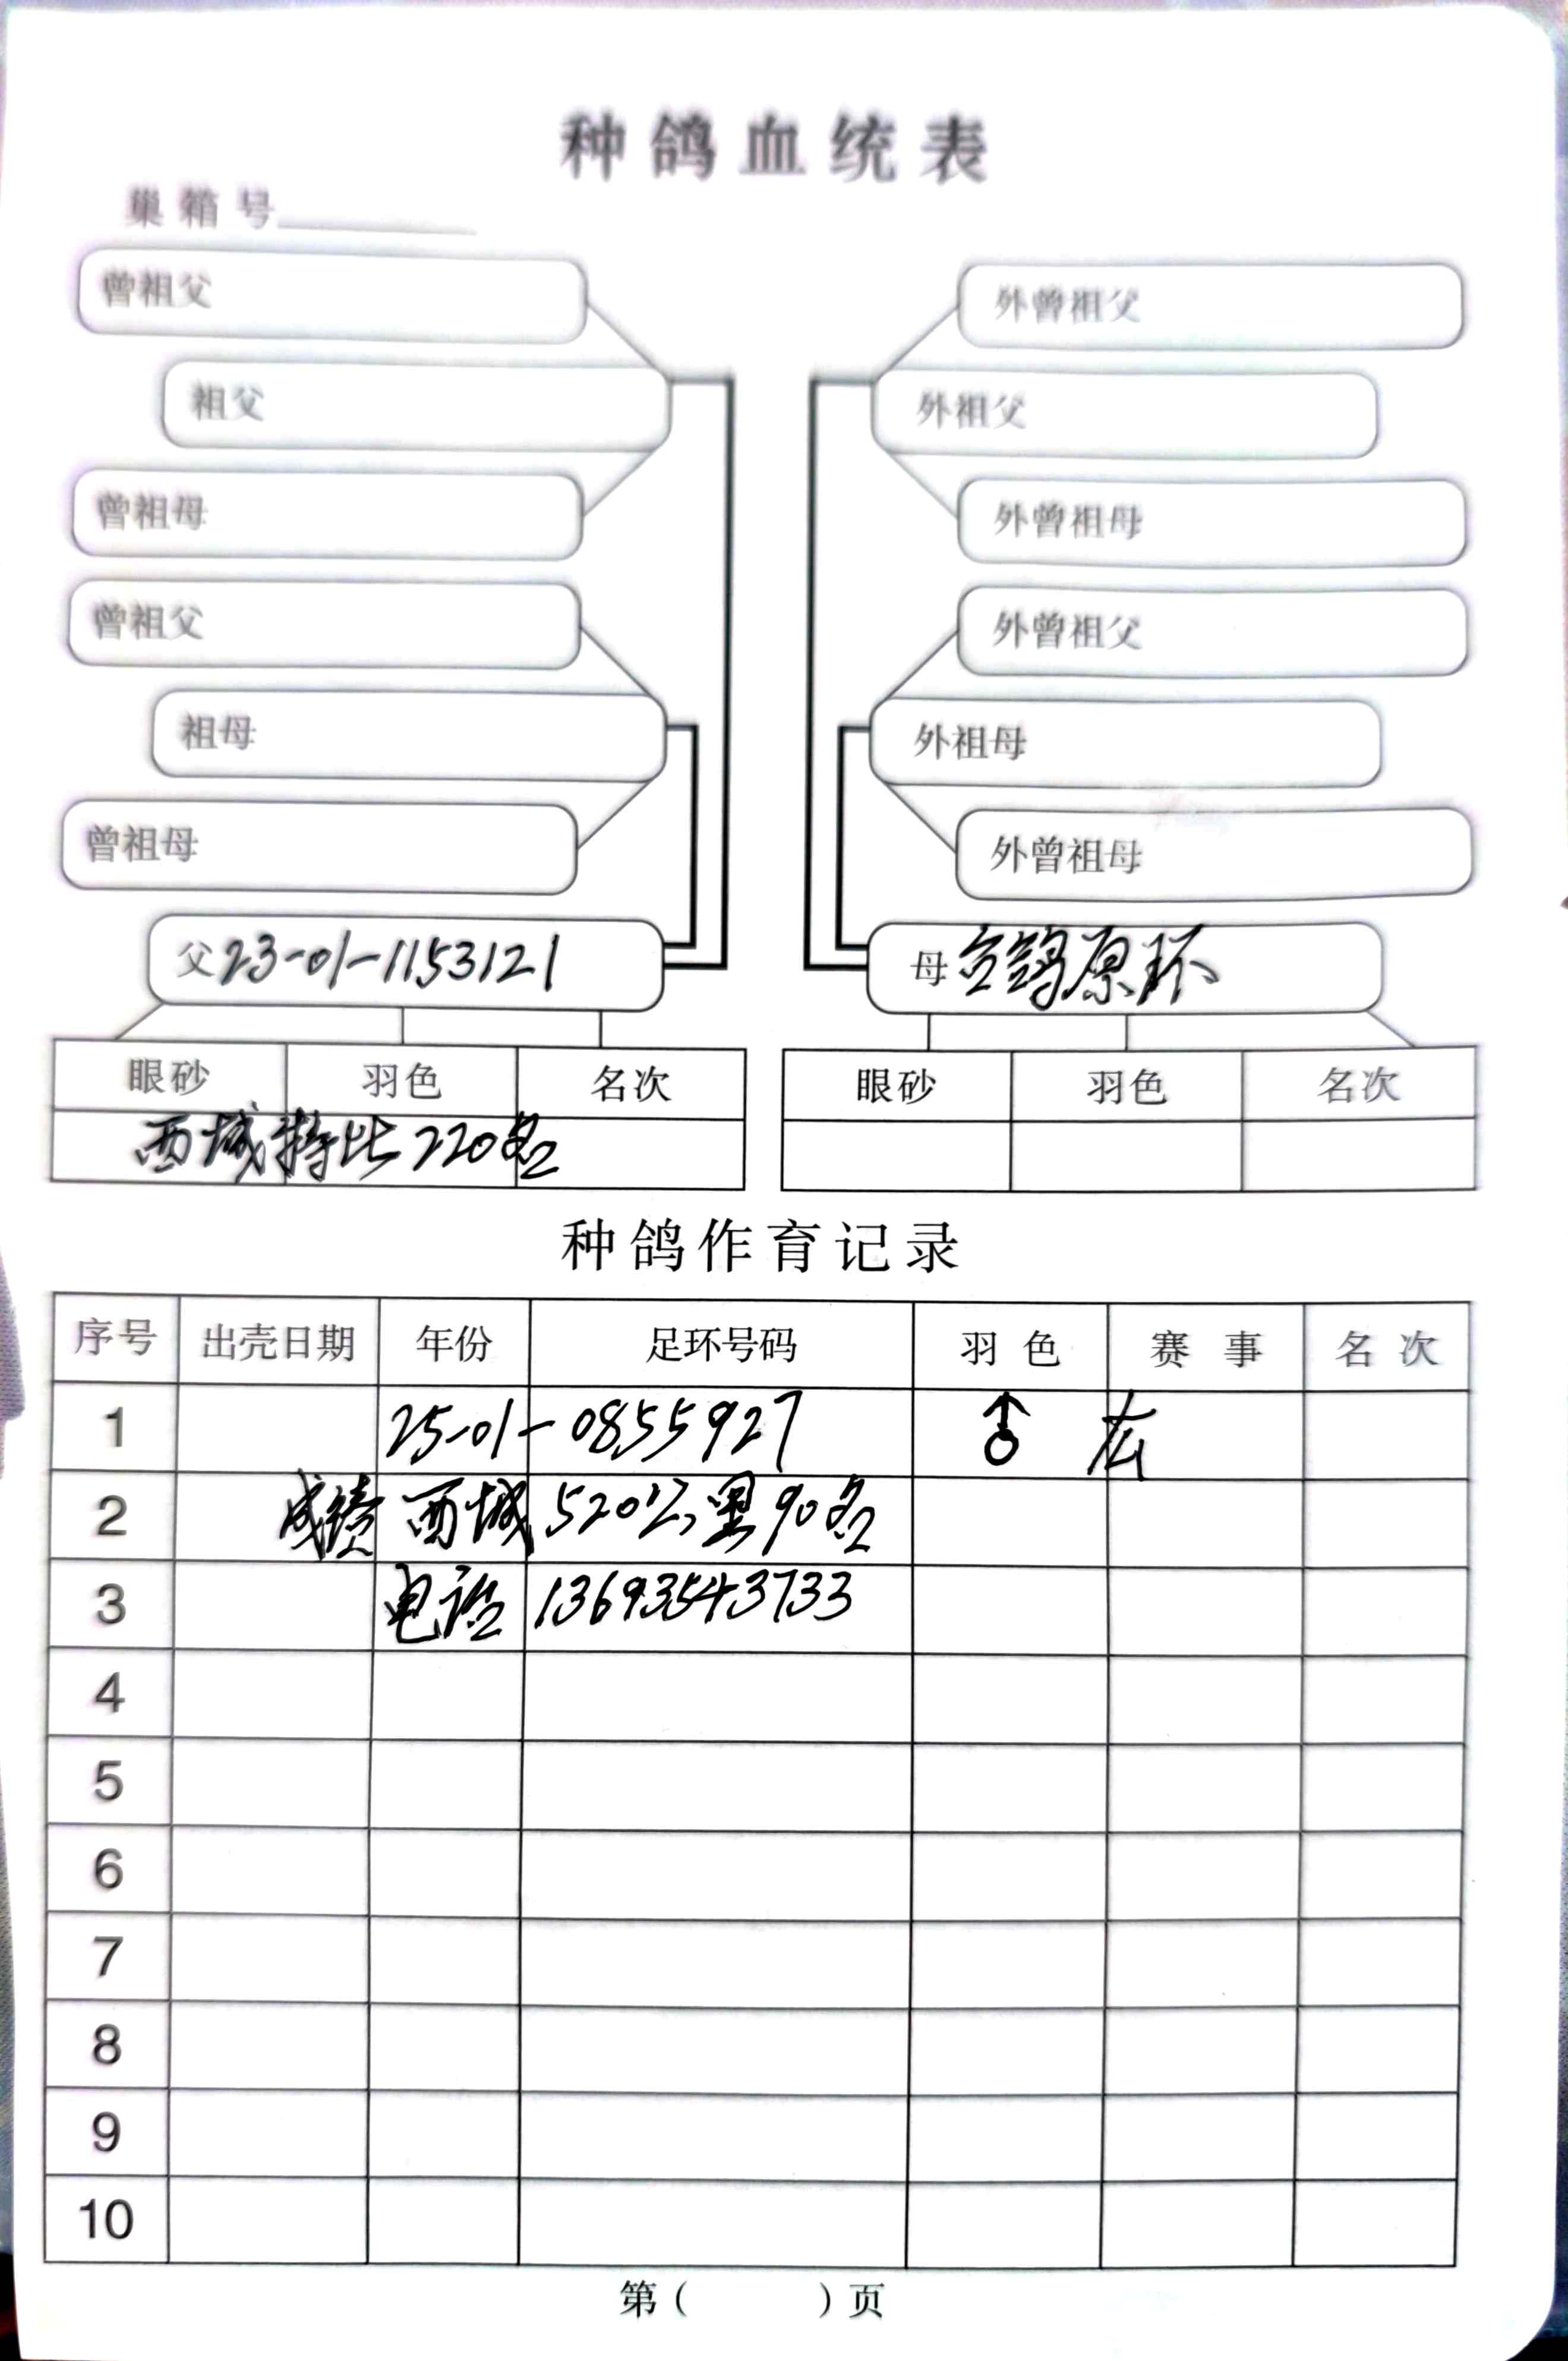 种鸽血统表
巢箱号
曾祖父
外曾祖父
祖父
外祖父
曾祖母
外曾祖母
曾祖父
外曾祖父
祖母
外祖母
曾祖母
外曾祖母
父 23-01-1153121
母 鸽原环
眼砂 羽色 名次
眼砂 羽色 名次
西城特比220名
种鸽作育记录
序号 出壳日期 年份 足环号码 羽色 赛事 名次
1 25-01-0855927 ♂
2 成绩 西城520公里90名
3 电话 13693543733
4
5
6
7
8
9
10
第( )页